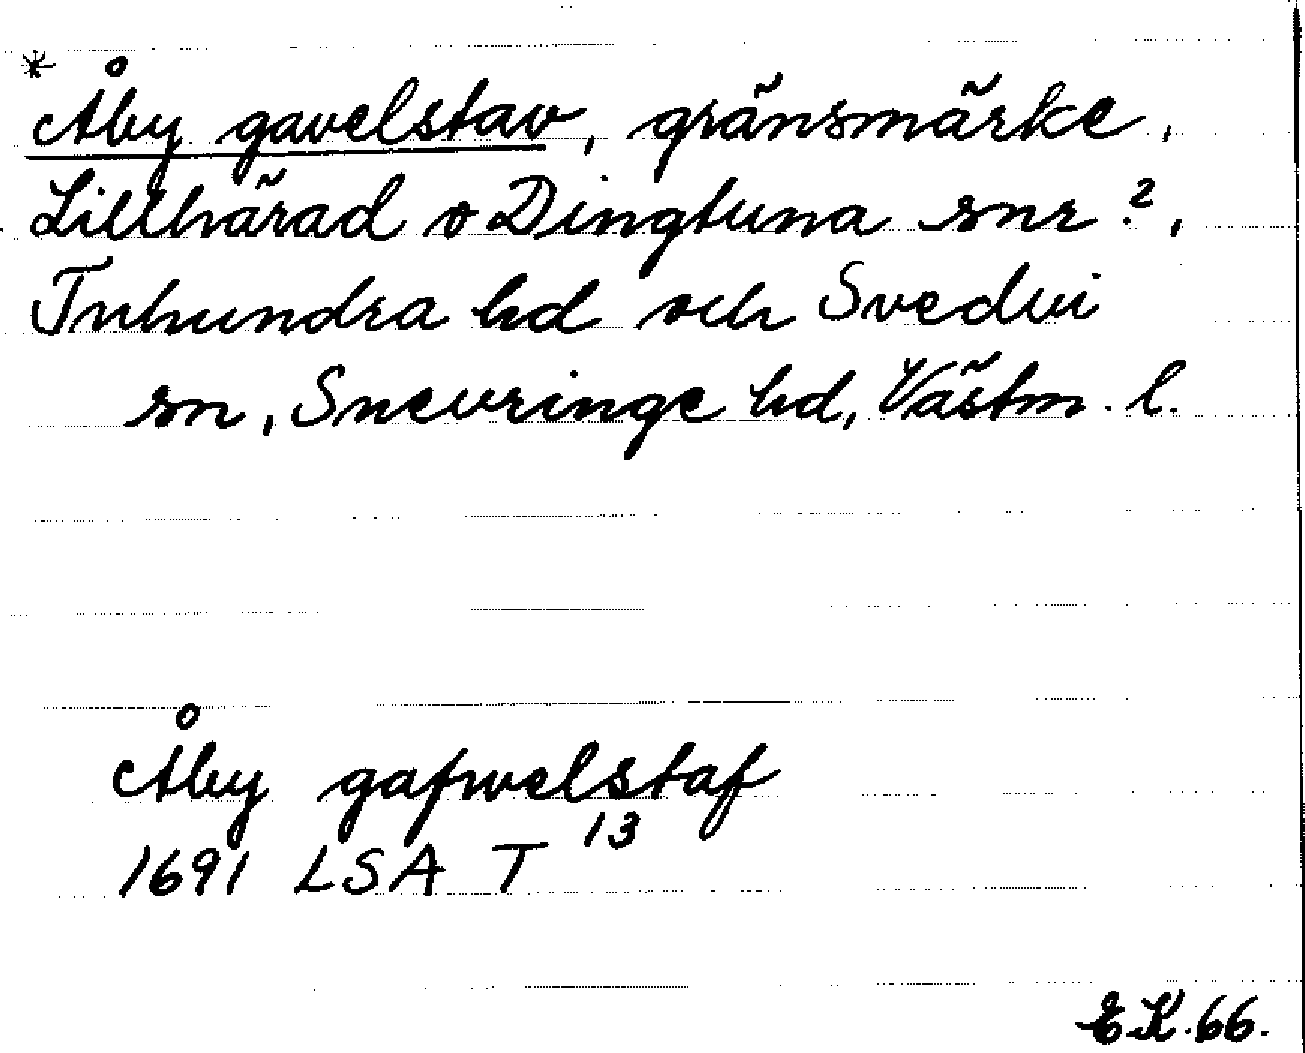 * Åby gavelstav, gränsmärke,
Lillhärad o Dingtuna snr?,
Tuhundra hd och Svedvi
sn, Snevringe hd, Västm. l.
Åby gafwelstaf
1691 LSA T 13
EK.66.